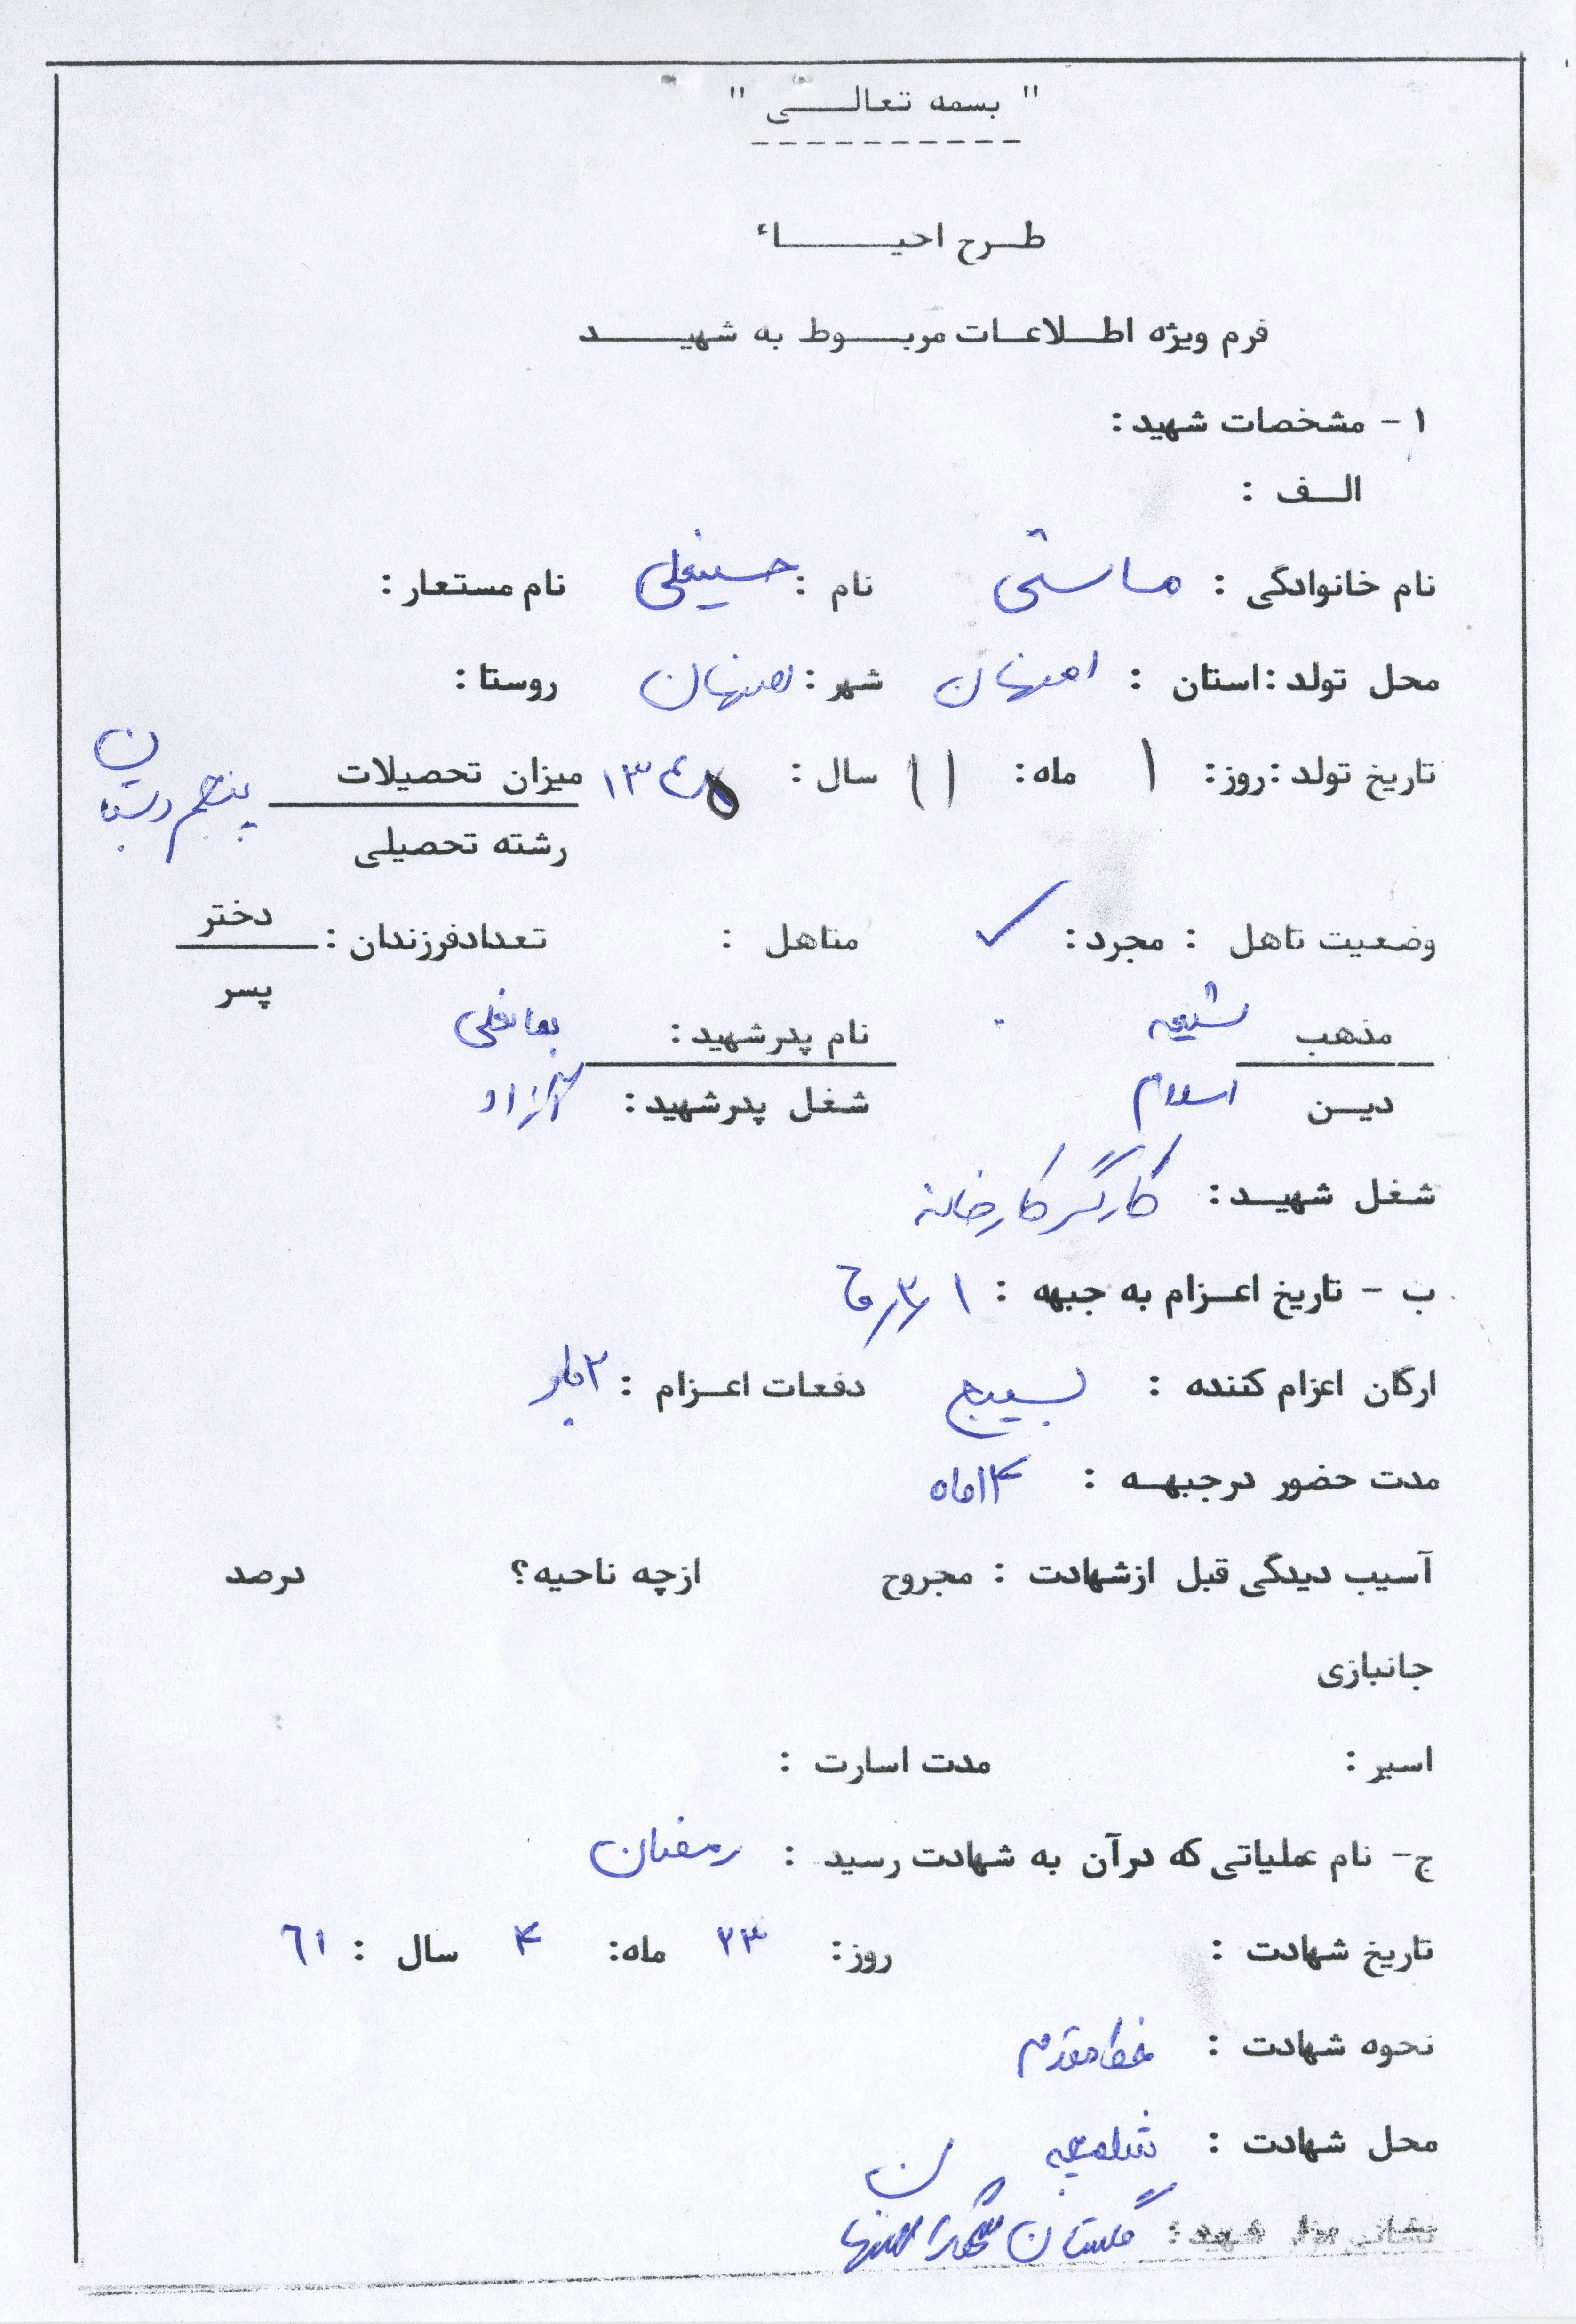 " بسمه تعالی "
طرح احیاء
فرم ویژه اطلاعات مربوط به شهید
۱ - مشخصات شهید :
الف :
نام خانوادگی : ماستی نام : حسینعلی نام مستعار :
محل تولد : استان : اصفهان شهر : اصفهان روستا :
تاریخ تولد : روز : ۱ ماه : ۱۱ سال : میزان تحصیلات پنجم دبستان
رشته تحصیلی
وضعیت تاهل : مجرد : ✓ متاهل : تعداد فرزندان : دختر
پسر
مذهب شیعه نام پدر شهید :
دین اسلام شغل پدر شهید : آزاد
شغل شهید : کارگر کارخانه
ب - تاریخ اعزام به جبهه :
ارگان اعزام کننده : بسیج دفعات اعزام : ۲ بار
مدت حضور در جبهه : ۱۴ ماه
آسیب دیدگی قبل از شهادت : مجروح از چه ناحیه ؟ درصد
جانبازی
اسیر : مدت اسارت :
ج - نام عملیاتی که در آن به شهادت رسید : رمضان
تاریخ شهادت : روز : ۲۳ ماه : ۴ سال : ۶۱
نحوه شهادت : خط مقدم
محل شهادت : شلمچه
نشانی مزار شهید : گلستان شهدا اصفهان